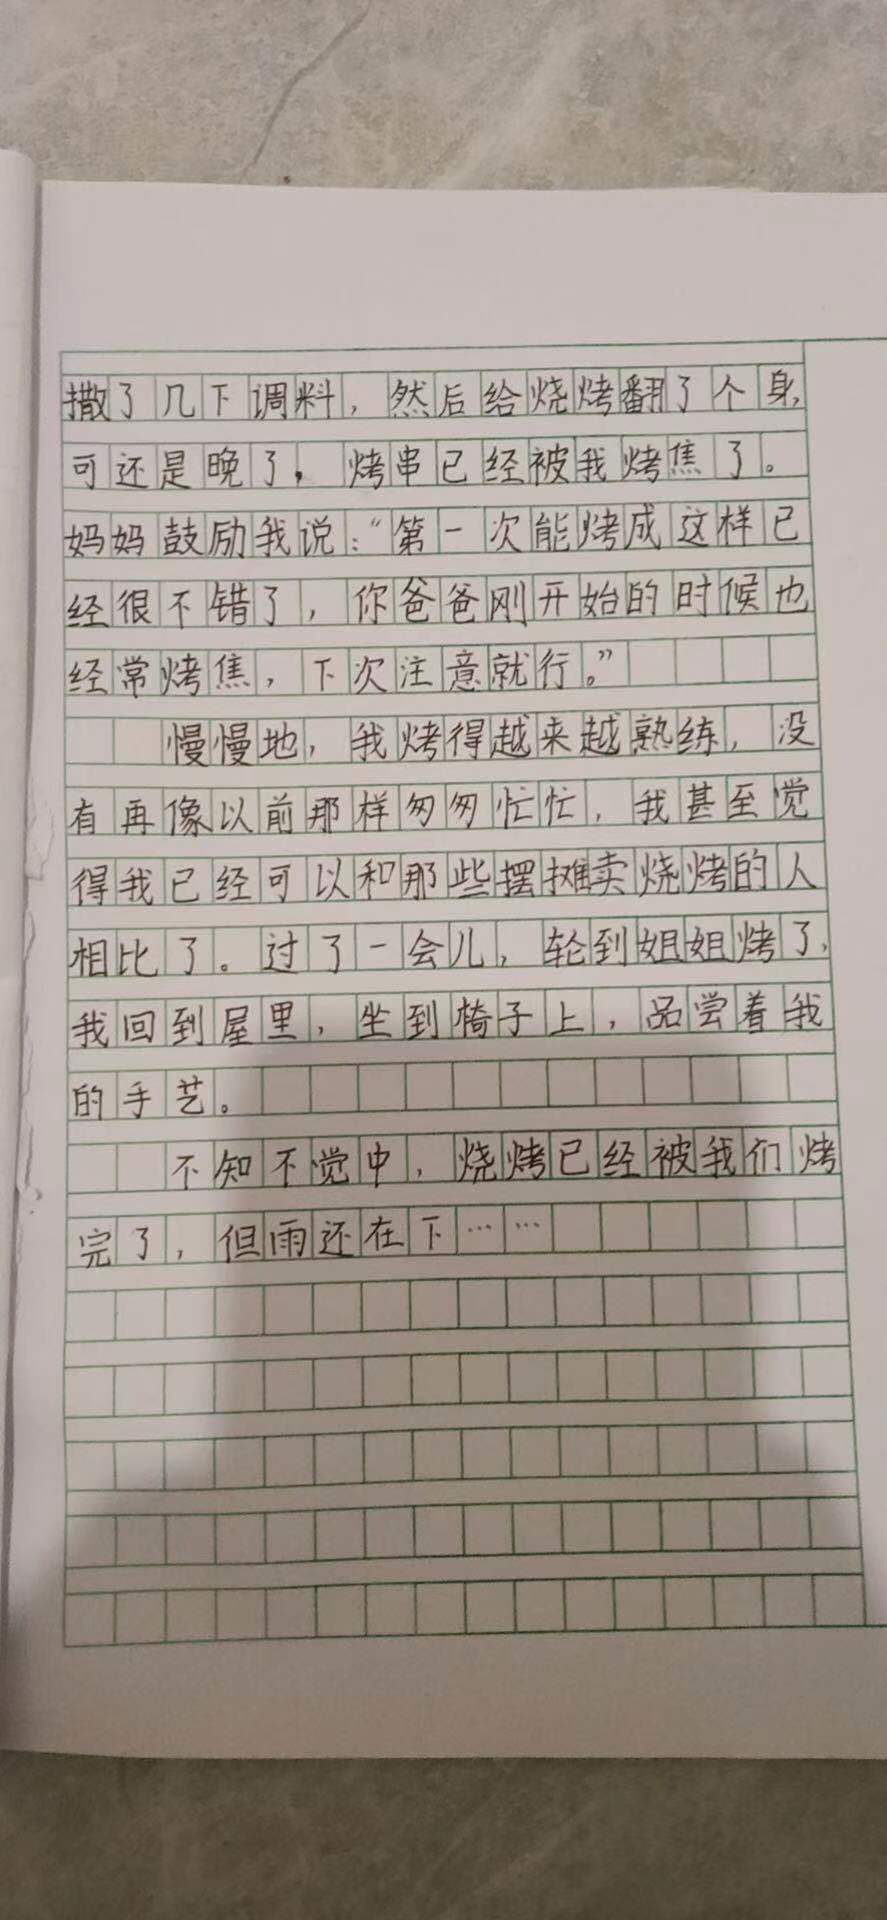 撒了几下调料，然后给烧烤翻了个身，
可还是晚了，烤串已经被我烤焦了。
妈妈鼓励我说：“第一次能烤成这样已
经很不错了，你爸爸刚开始的时候也
经常烤焦，下次注意就行。”
慢慢地，我烤得越来越熟练，没
有再像以前那样匆匆忙忙，我甚至觉
得我已经可以和那些摆摊卖烧烤的人
相比了。过了一会儿，轮到姐姐烤了，
我回到屋里，坐到椅子上，品尝着我
的手艺。
不知不觉中，烧烤已经被我们烤
完了，但雨还在下……